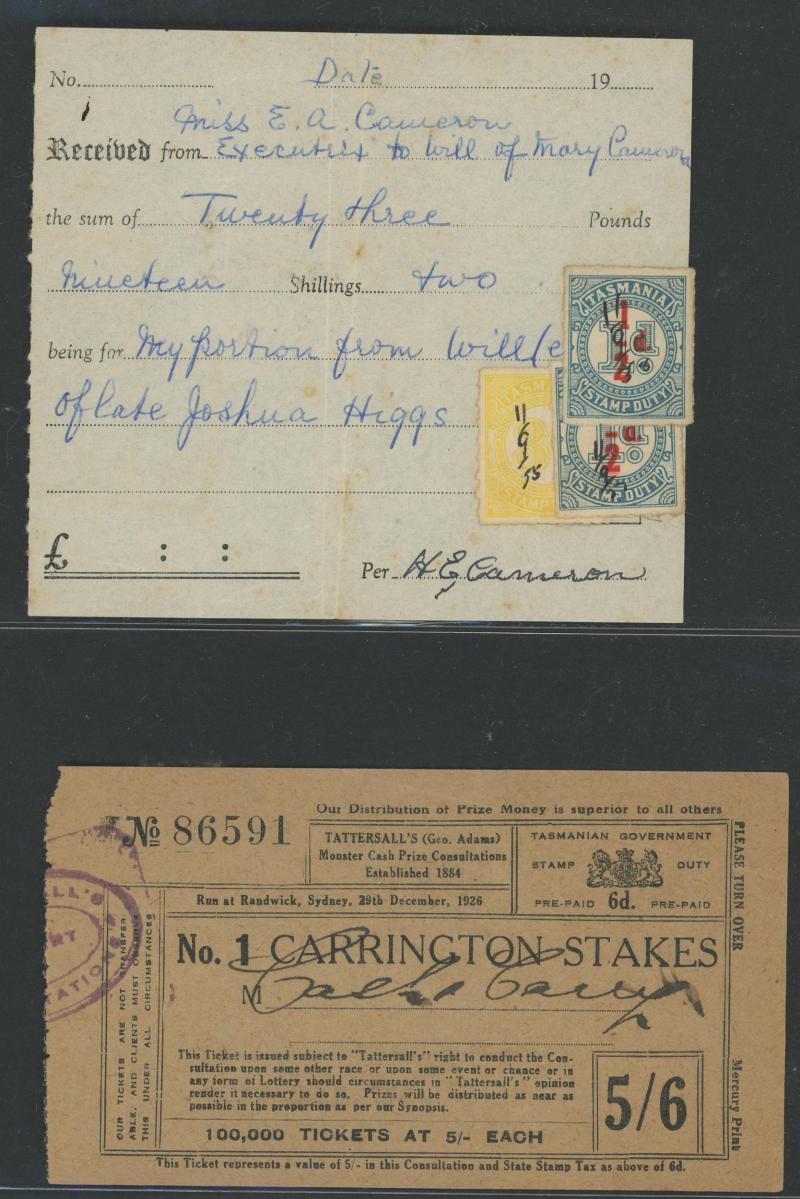 No. Date 19
Miss E. A. Cameron
Received from Executrix to Will of Mary Cameron
the sum of Twenty three Pounds
Nineteen Shillings two
being for My portion from Will (e
of late Joshua Higgs
£ : :
Per H E Cameron
TASMANIA
1/2d.
1d
STAMP DUTY
TASMAN
11/6/55
STAMP
1/2d.
STAMP DUTY
No 86591
Our Distribution of Prize Money is superior to all others
TATTERSALL'S (Geo. Adams)
Monster Cash Prize Consultations
Established 1884
TASMANIAN GOVERNMENT
STAMP DUTY
PRE-PAID 6d. PRE-PAID
Run at Randwick, Sydney, 29th December, 1926
No. 1 CARRINGTON STAKES
M
This Ticket is issued subject to "Tattersall's" right to conduct the Con-
sultation upon some other race or upon some event or chance or in
any form of Lottery should circumstances in "Tattersall's" opinion
render it necessary to do so. Prizes will be distributed as near as
possible in the proportion as per our Synopsis.
5/6
100,000 TICKETS AT 5/- EACH
This Ticket represents a value of 5/- in this Consultation and State Stamp Tax as above of 6d.
OUR TICKETS ARE NOT TRANSFER-
ABLE, AND CLIENTS MUST OBSERVE
THIS UNDER ALL CIRCUMSTANCES
PLEASE TURN OVER
Mercury Print
ALL'S
TATIONS